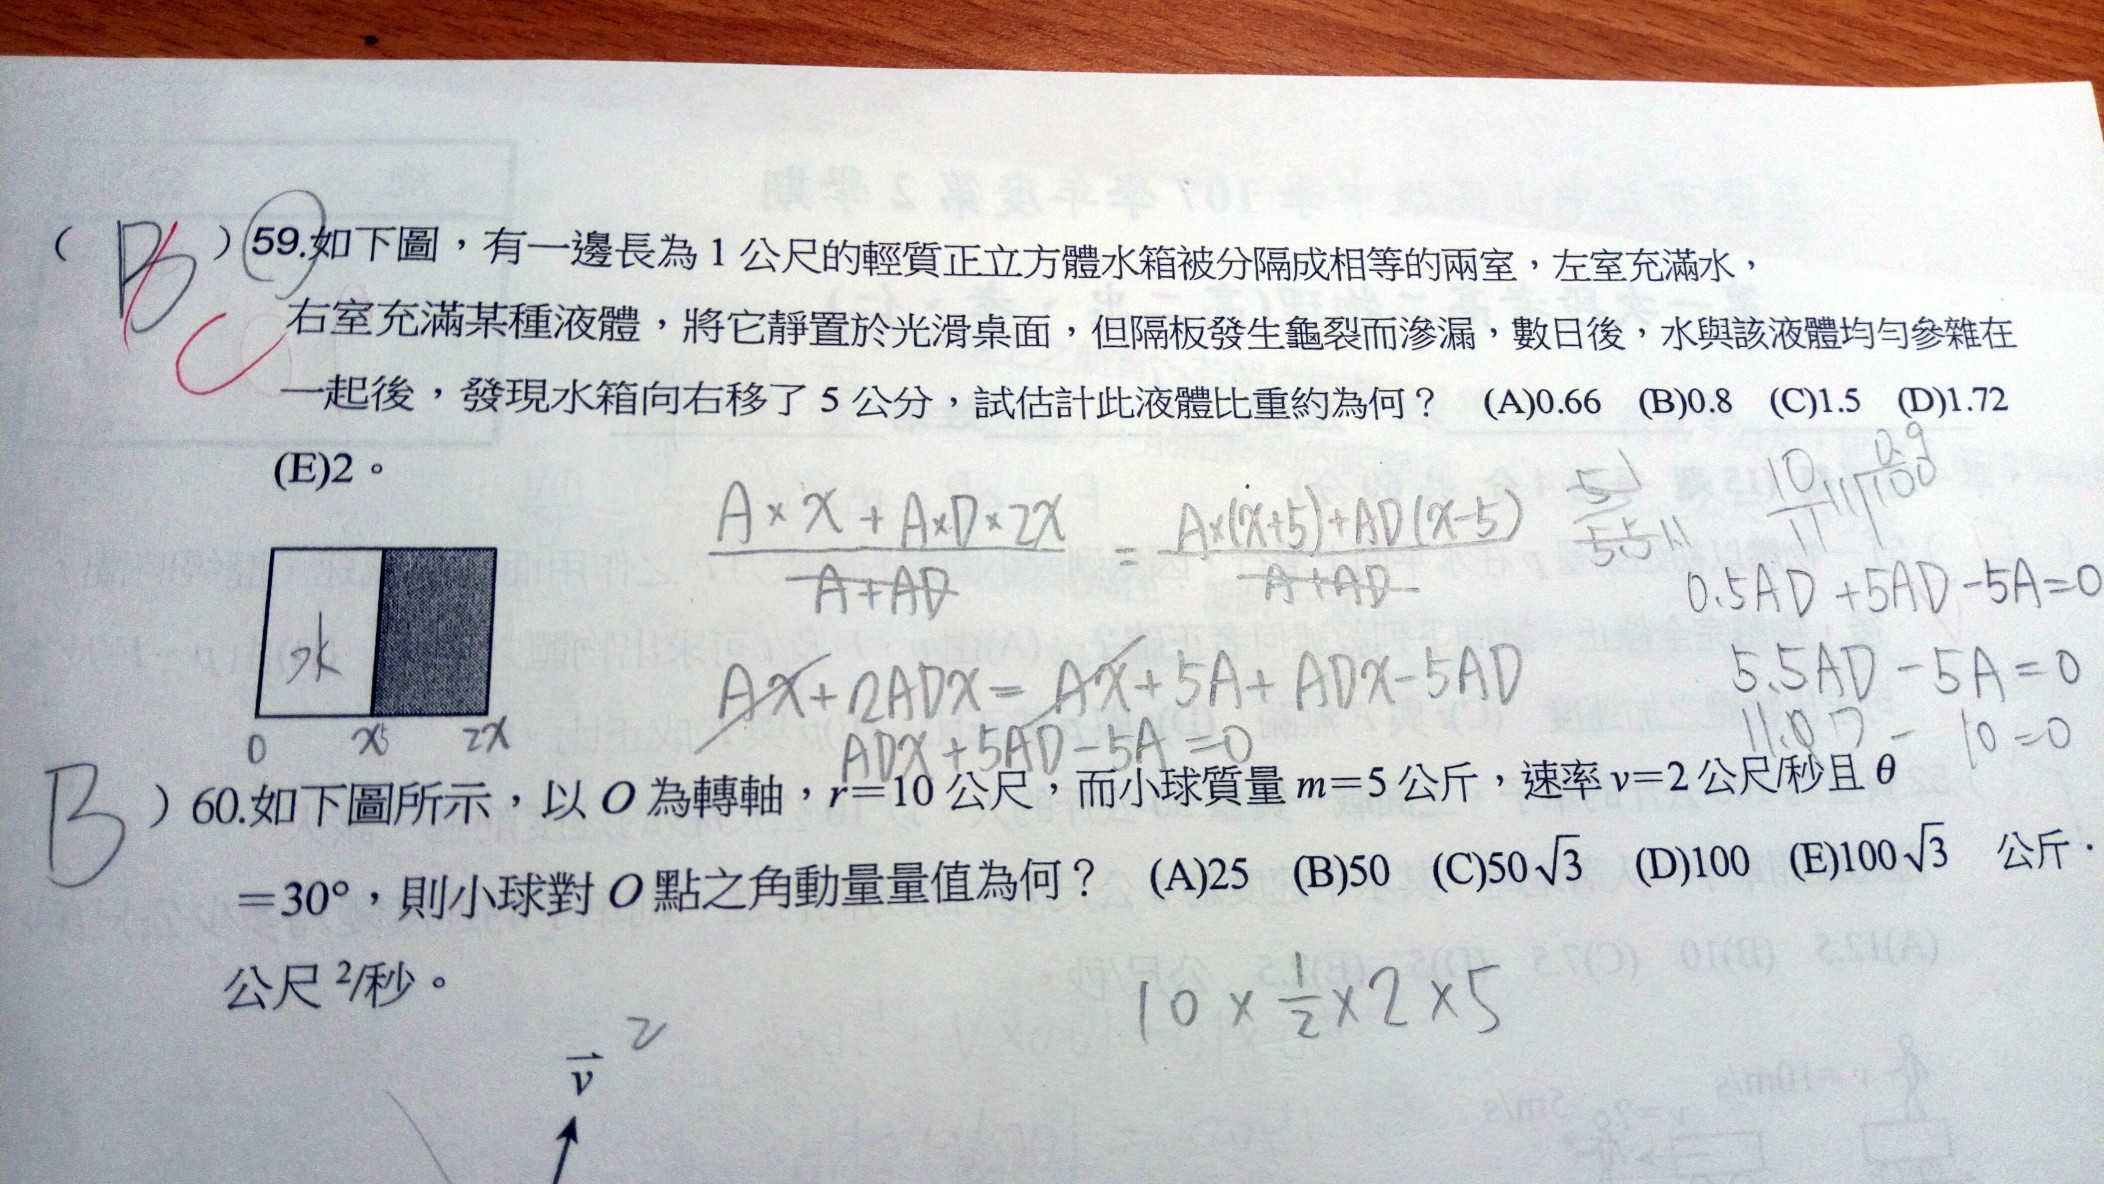 ( B C ) 59.如下圖，有一邊長為 1 公尺的輕質正立方體水箱被分隔成相等的兩室，左室充滿水，
右室充滿某種液體，將它靜置於光滑桌面，但隔板發生龜裂而滲漏，數日後，水與該液體均勻參雜在
一起後，發現水箱向右移了 5 公分，試估計此液體比重約為何？ (A)0.66 (B)0.8 (C)1.5 (D)1.72
(E)2。
A×x+A×D×2x / A+AD = A×(x+5)+AD(x-5) / A+AD
0.5AD+5AD-5A=0
Ax+2ADx=Ax+5A+ADx-5AD
5.5AD-5A=0
ADx+5AD-5A=0
水
0 x 2x
B ) 60.如下圖所示，以 O 為轉軸，r=10 公尺，而小球質量 m=5 公斤，速率 v=2 公尺/秒且 θ
=30°，則小球對 O 點之角動量量值為何？ (A)25 (B)50 (C)50√3 (D)100 (E)100√3 公斤．
公尺²/秒。
10×1/2×2×5
2
v